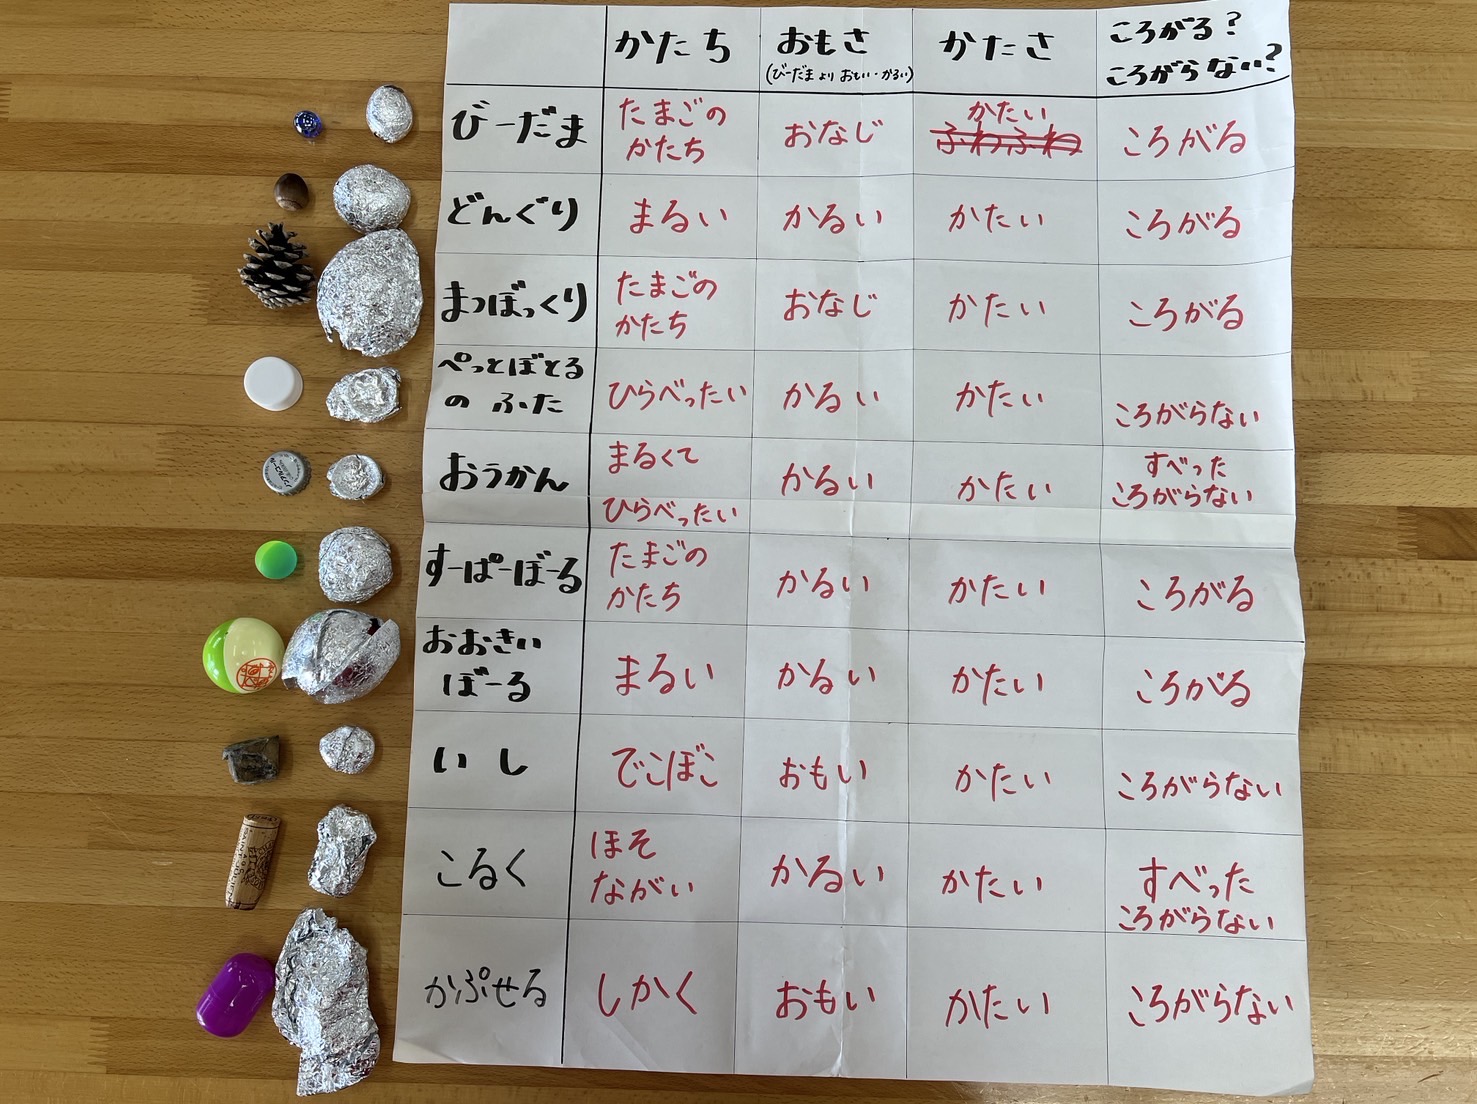 かたち おもさ かたさ ころがる?
(びーだまより おもい・かるい) ころがらない?
びーだま たまごの おなじ かたい ころがる
かたち ふわふわ
どんぐり まるい かるい かたい ころがる
まつぼっくり たまごの おなじ かたい ころがる
かたち
ぺっとぼとる ひらべったい かるい かたい ころがらない
の ふた
おうかん まるくて かるい かたい すべった
ひらべったい ころがらない
すーぱーぼーる たまごの かるい かたい ころがる
かたち
おおきい まるい かるい かたい ころがる
ぼーる
いし でこぼこ おもい かたい ころがらない
こるく ほそ かるい かたい すべった
ながい ころがらない
かぷせる しかく おもい かたい ころがらない